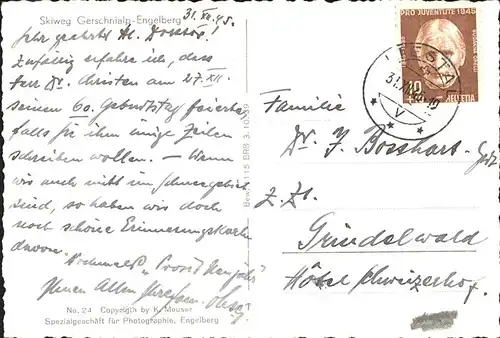 Skiweg Gerschnialp-Engelberg
31. XII. 45.
Sehr geehrter H. Doktor!
Zufällig erfahre ich, dass
Herr Dr. Christen am 27. XII.
seinen 60. Geburtstag feierte
falls Sie ihm einige Zeilen
schreiben wollen. – Wenn
wir auch nicht im Schneegebiet
sind, so haben wir doch
noch schöne Erinnerungskarten
davon.
Nochmals "Prosit Neujahr"
Ihnen Allen Ihre
No. 24 Copyrigth by K. Meuser
Spezialgeschäft für Photographie, Engelberg
PRO JUVENTUTE 1945
10
HELVETIA
LIESTAL
V
Familie
Dr. J. Bosshart
z. Zt.
Grindelwald
Hôtel Schweizerhof